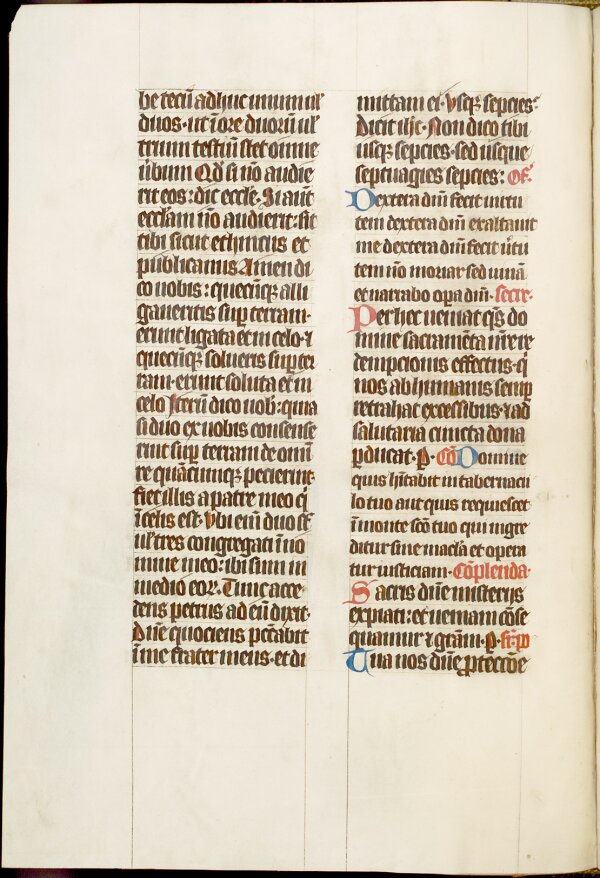 be tecū adhuc unum ul'
duos· ut ī ore duorū ul'
trium testiū stet omne
ūbum Qd' si nō audie
rit eos: dic eccle· Si aūt
ecclam nō audierit: sit
tibi sicut ethnicus et
publicanus Amen di
co uobis: quecūq; alli
gaueritis sup terram·
erunt ligata et in celo· ⁊
quecūq; solueris sup ter
ram· erunt soluta et in
celo Iterū dico uob: quia
si duo ex uobis consense
rint sup terram de omī
re quācumq; pecierint·
fiet illis a patre meo q
ī celis est· Vbi eīm duo st'
ul' tres congregati ī no
mine meo: ibi sum in
medio eor· Tunc acce
dens petrus ad eū dixit·
Dn̄e quociens peccabit
ī me frater meus· et di
mittam ei· Vsq; sepcies?
Dicit illi ihc· Non dico tibi
usq; sepcies· sed usque
septuagies sepcies: Of·
Dextera dn̄i fecit uirtu
tem dextera dn̄i exaltauit
me dextera dn̄i fecit ūtu
tem nō moriar sed uiuā
et narrabo opa dn̄i· secr·
Per hec ueniat q̄s do
mine sacramēta nr̄e re
dempcionis effectus· q
nos ab humanis semp
retrahat excessibus· ⁊ ad
salutaria cuncta dona
pducat· p· Cō Domine
quis hītabit in tabernacu
lo tuo aut quis requiescet
ī monte scō tuo qui ingre
ditur sine macla et opera
tur iusticiam· Cōplenda·
Sacris dn̄e misterijs
expiati: et ueniam cōse
quamur ⁊ grām· p·
Tua nos dn̄e ꝓtectōe